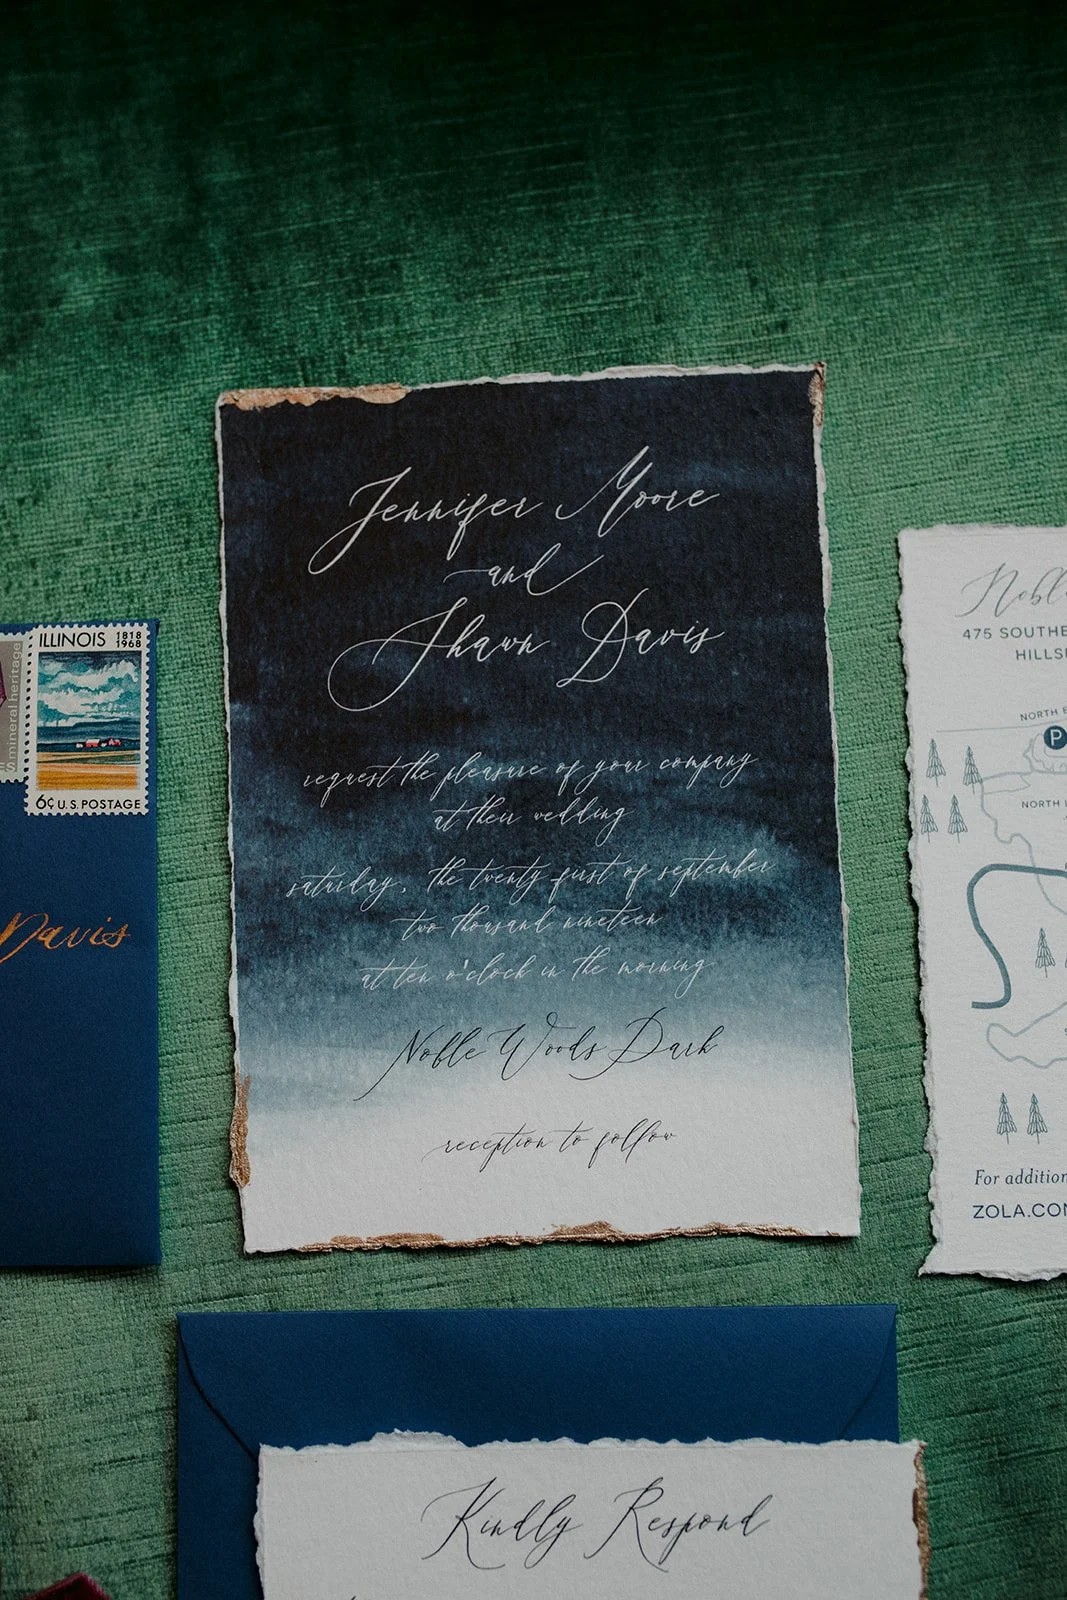 Jennifer Moore
and
Shawn Davis
request the pleasure of your company
at their wedding
saturday, the twenty first of september
two thousand nineteen
at ten o'clock in the morning
Noble Woods Park
reception to follow
mineral heritage
ILLINOIS 1818
1968
6¢ U.S. POSTAGE
Davis
Nobl
475 SOUTHE
HILLS
NORTH
P
NORTH
For addition
ZOLA.CO
Kindly Respond